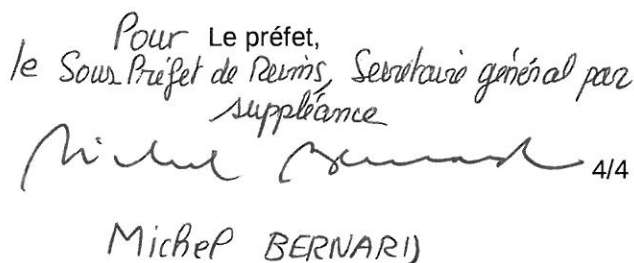 Pour Le préfet,
le Sous Préfet de Reims, Secrétaire général par
suppléance
Michel Bernard
4/4
Michel BERNARD